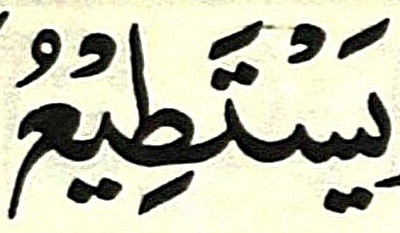 يَسْتَطِيْعُ